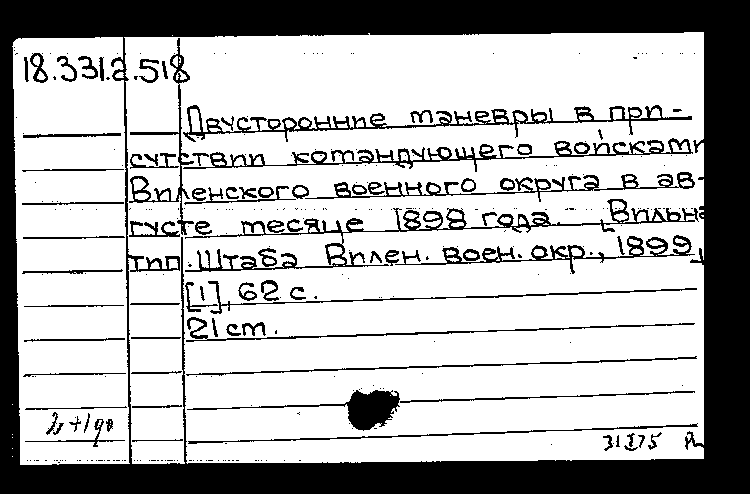 18.331.2.518
Двусторонние маневры в при-
сутствии командующего войсками
Виленского военного округа в ав-
густе месяце 1898 года. [Вильна
тип. Штаба Вилен. воен. окр., 1899]
[1], 62 с.
21 cm.
31 I 75